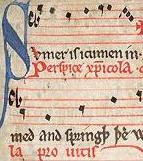 Sumer is icumen in.
Perspice xp̄icola.
med and springþ þe w
la pro uitis